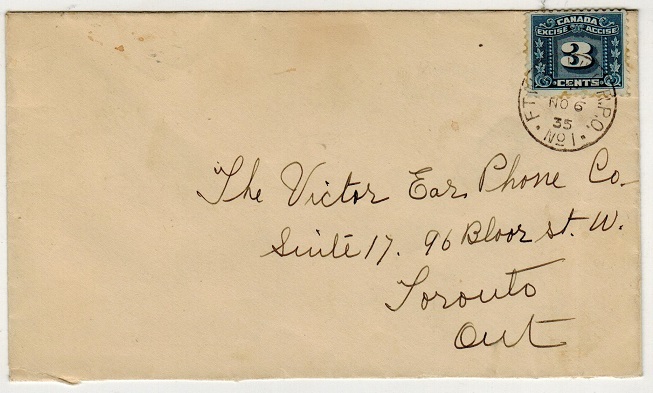 CANADA
EXCISE ACCISE
3
CENTS
R.P.O.
NO 6
35
No 1
The Victor Ear Phone Co
Suite 17. 96 Bloor st. W.
Toronto
Ont